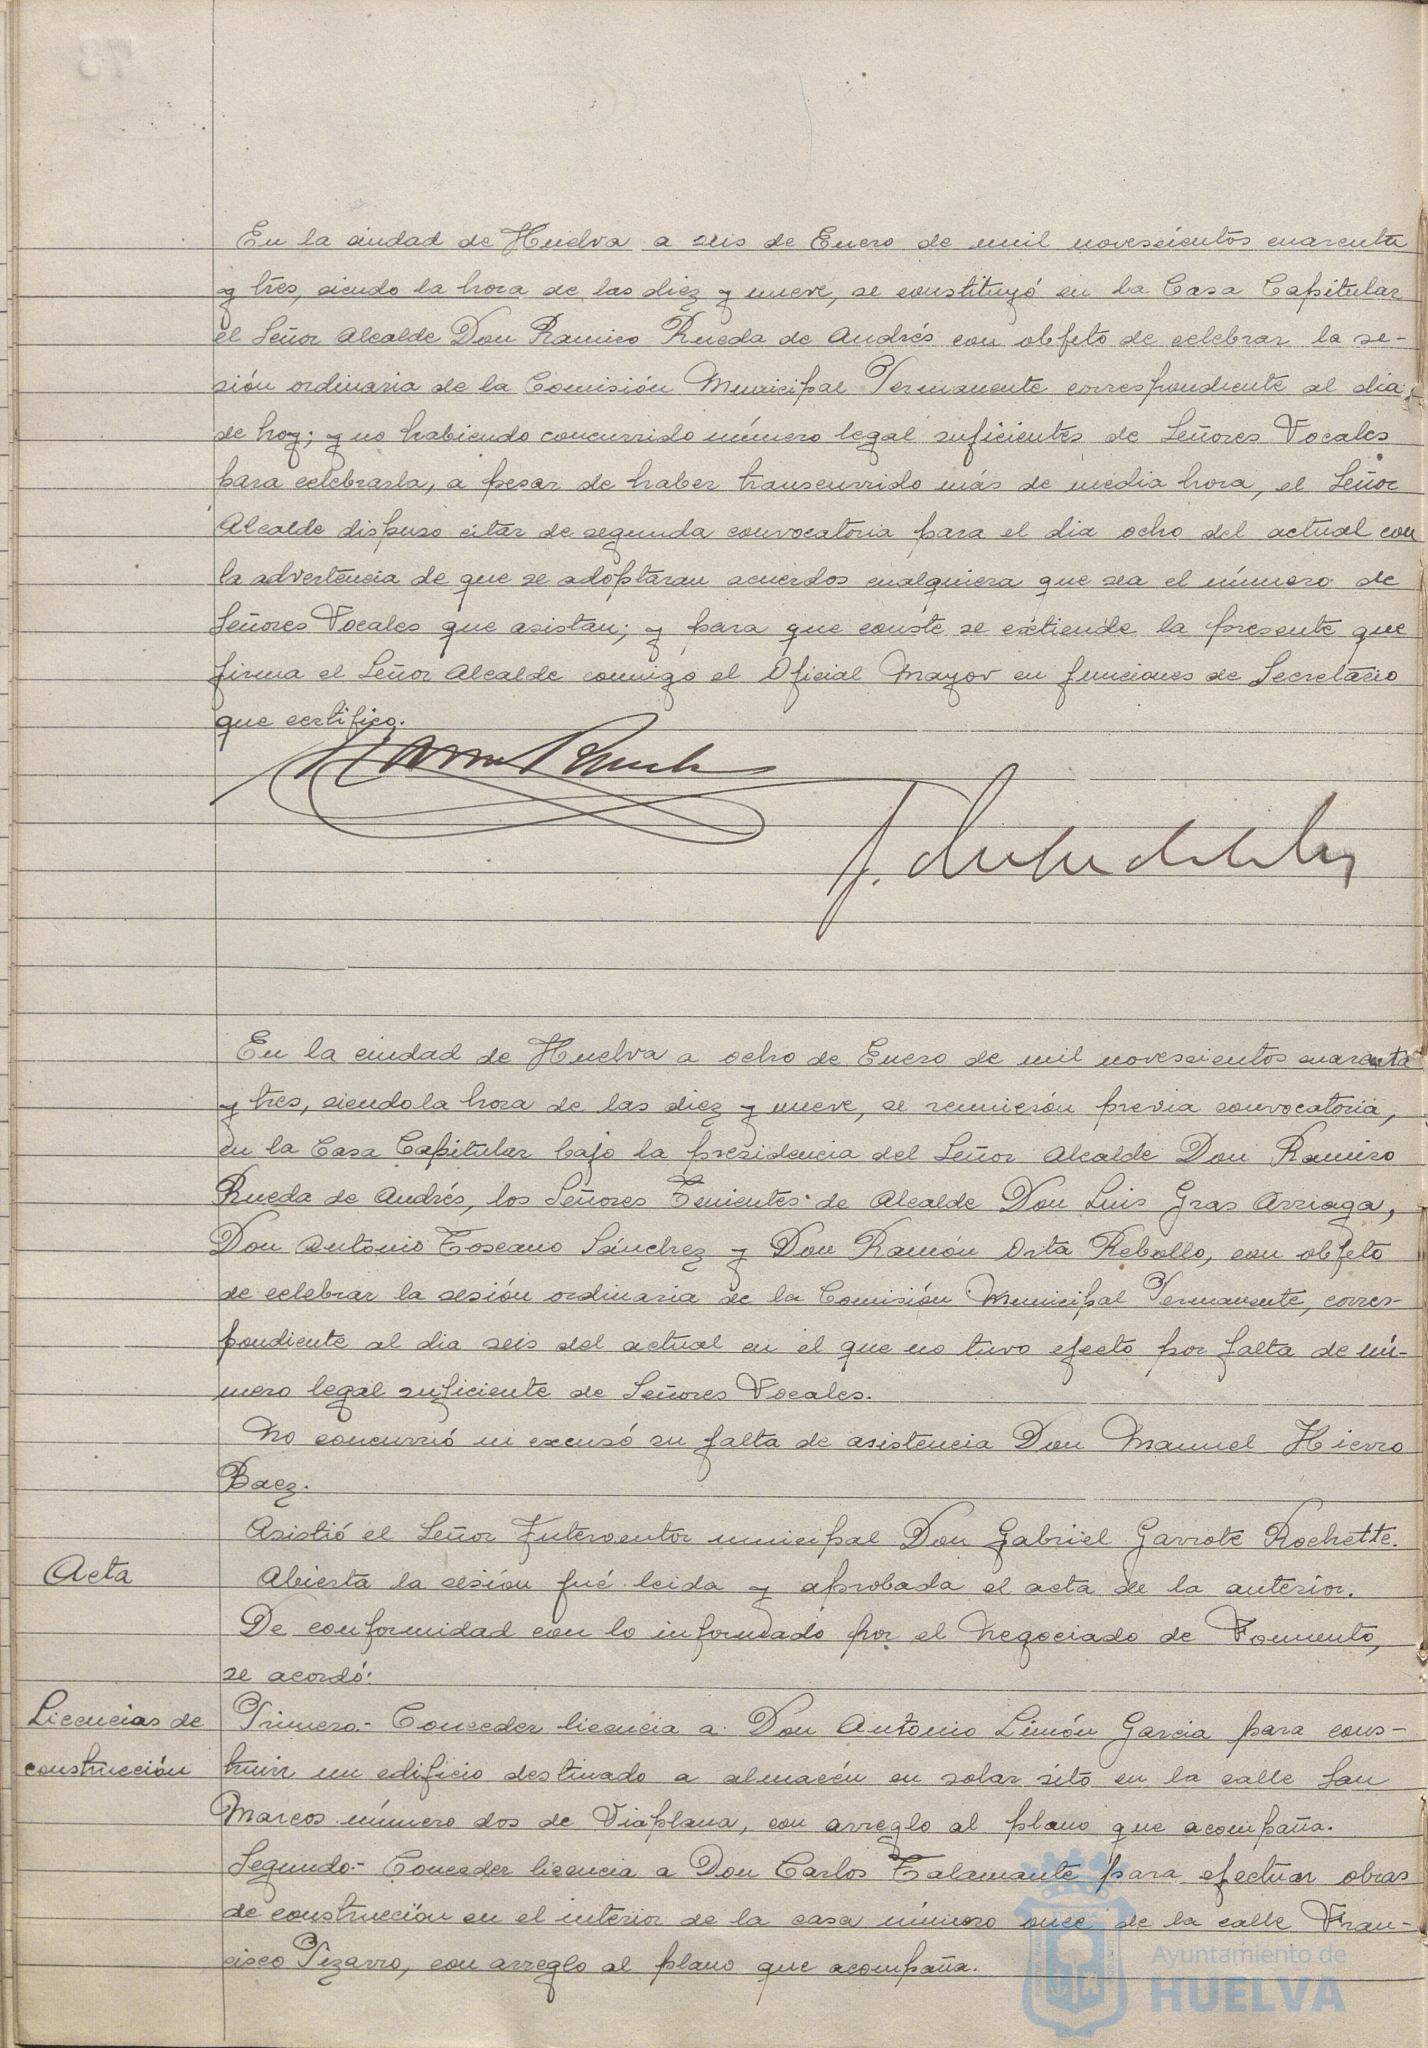 En la ciudad de Huelva a seis de Enero de mil novescientos cuarenta
y tres, siendo la hora de las diez y nueve, se constituyó en la Casa Capitular
el Señor Alcalde Don Ramiro Rueda de Andrés con objeto de celebrar la se-
sión ordinaria de la Comisión Municipal Permanente correspondiente al dia
de hoy; y no habiendo concurrido número legal suficientes de Señores Vocales
para celebrarla, a pesar de haber transcurrido más de media hora, el Señor
Alcalde dispuso citar de segunda convocatoria para el dia ocho del actual con
la advertencia de que se adoptaran acuerdos cualquiera que sea el número de
Señores Vocales que asistan; y para que conste se extiende la presente que
firma el Señor Alcalde conmigo el Oficial Mayor en funciones de Secretario
que certifico.
En la ciudad de Huelva a ocho de Enero de mil novescientos cuarenta
y tres, siendo la hora de las diez y nueve, se reunierón previa convocatoria,
en la Casa Capitular bajo la presidencia del Señor Alcalde Don Ramiro
Rueda de Andrés, los Señores Tenientes de Alcalde Don Luis Gras Arriaga,
Don Antonio Toscano Sánchez y Don Ramón Orta Rebollo, con objeto
de celebrar la sesión ordinaria de la Comisión Municipal Permanente, corres-
pondiente al dia seis del actual en el que no tuvo efecto por falta de nú-
mero legal suficiente de Señores Vocales.
No concurrió ni excusó su falta de asistencia Don Manuel Hierro
Baez.
Asistió el Señor Interventor municipal Don Gabriel Garrote Rochette.
Acta
Abierta la sesión fué leida y aprobada el acta de la anterior.
De conformidad con lo informado por el Negociado de Fomento,
se acordó:
Licencias de construcción
Primero.- Conceder licencia a Don Antonio Limón Garcia para cons-
truir un edificio destinado a almacén en solar sito en la calle San
Marcos número dos de Viaplana, con arreglo al plano que acompaña.
Segundo.- Conceder licencia a Don Carlos Talamante para efectuar obras
de construcción en el interior de la casa número once de la calle Fran-
cisco Pizarro, con arreglo al plano que acompaña.
Ayuntamiento de
HUELVA